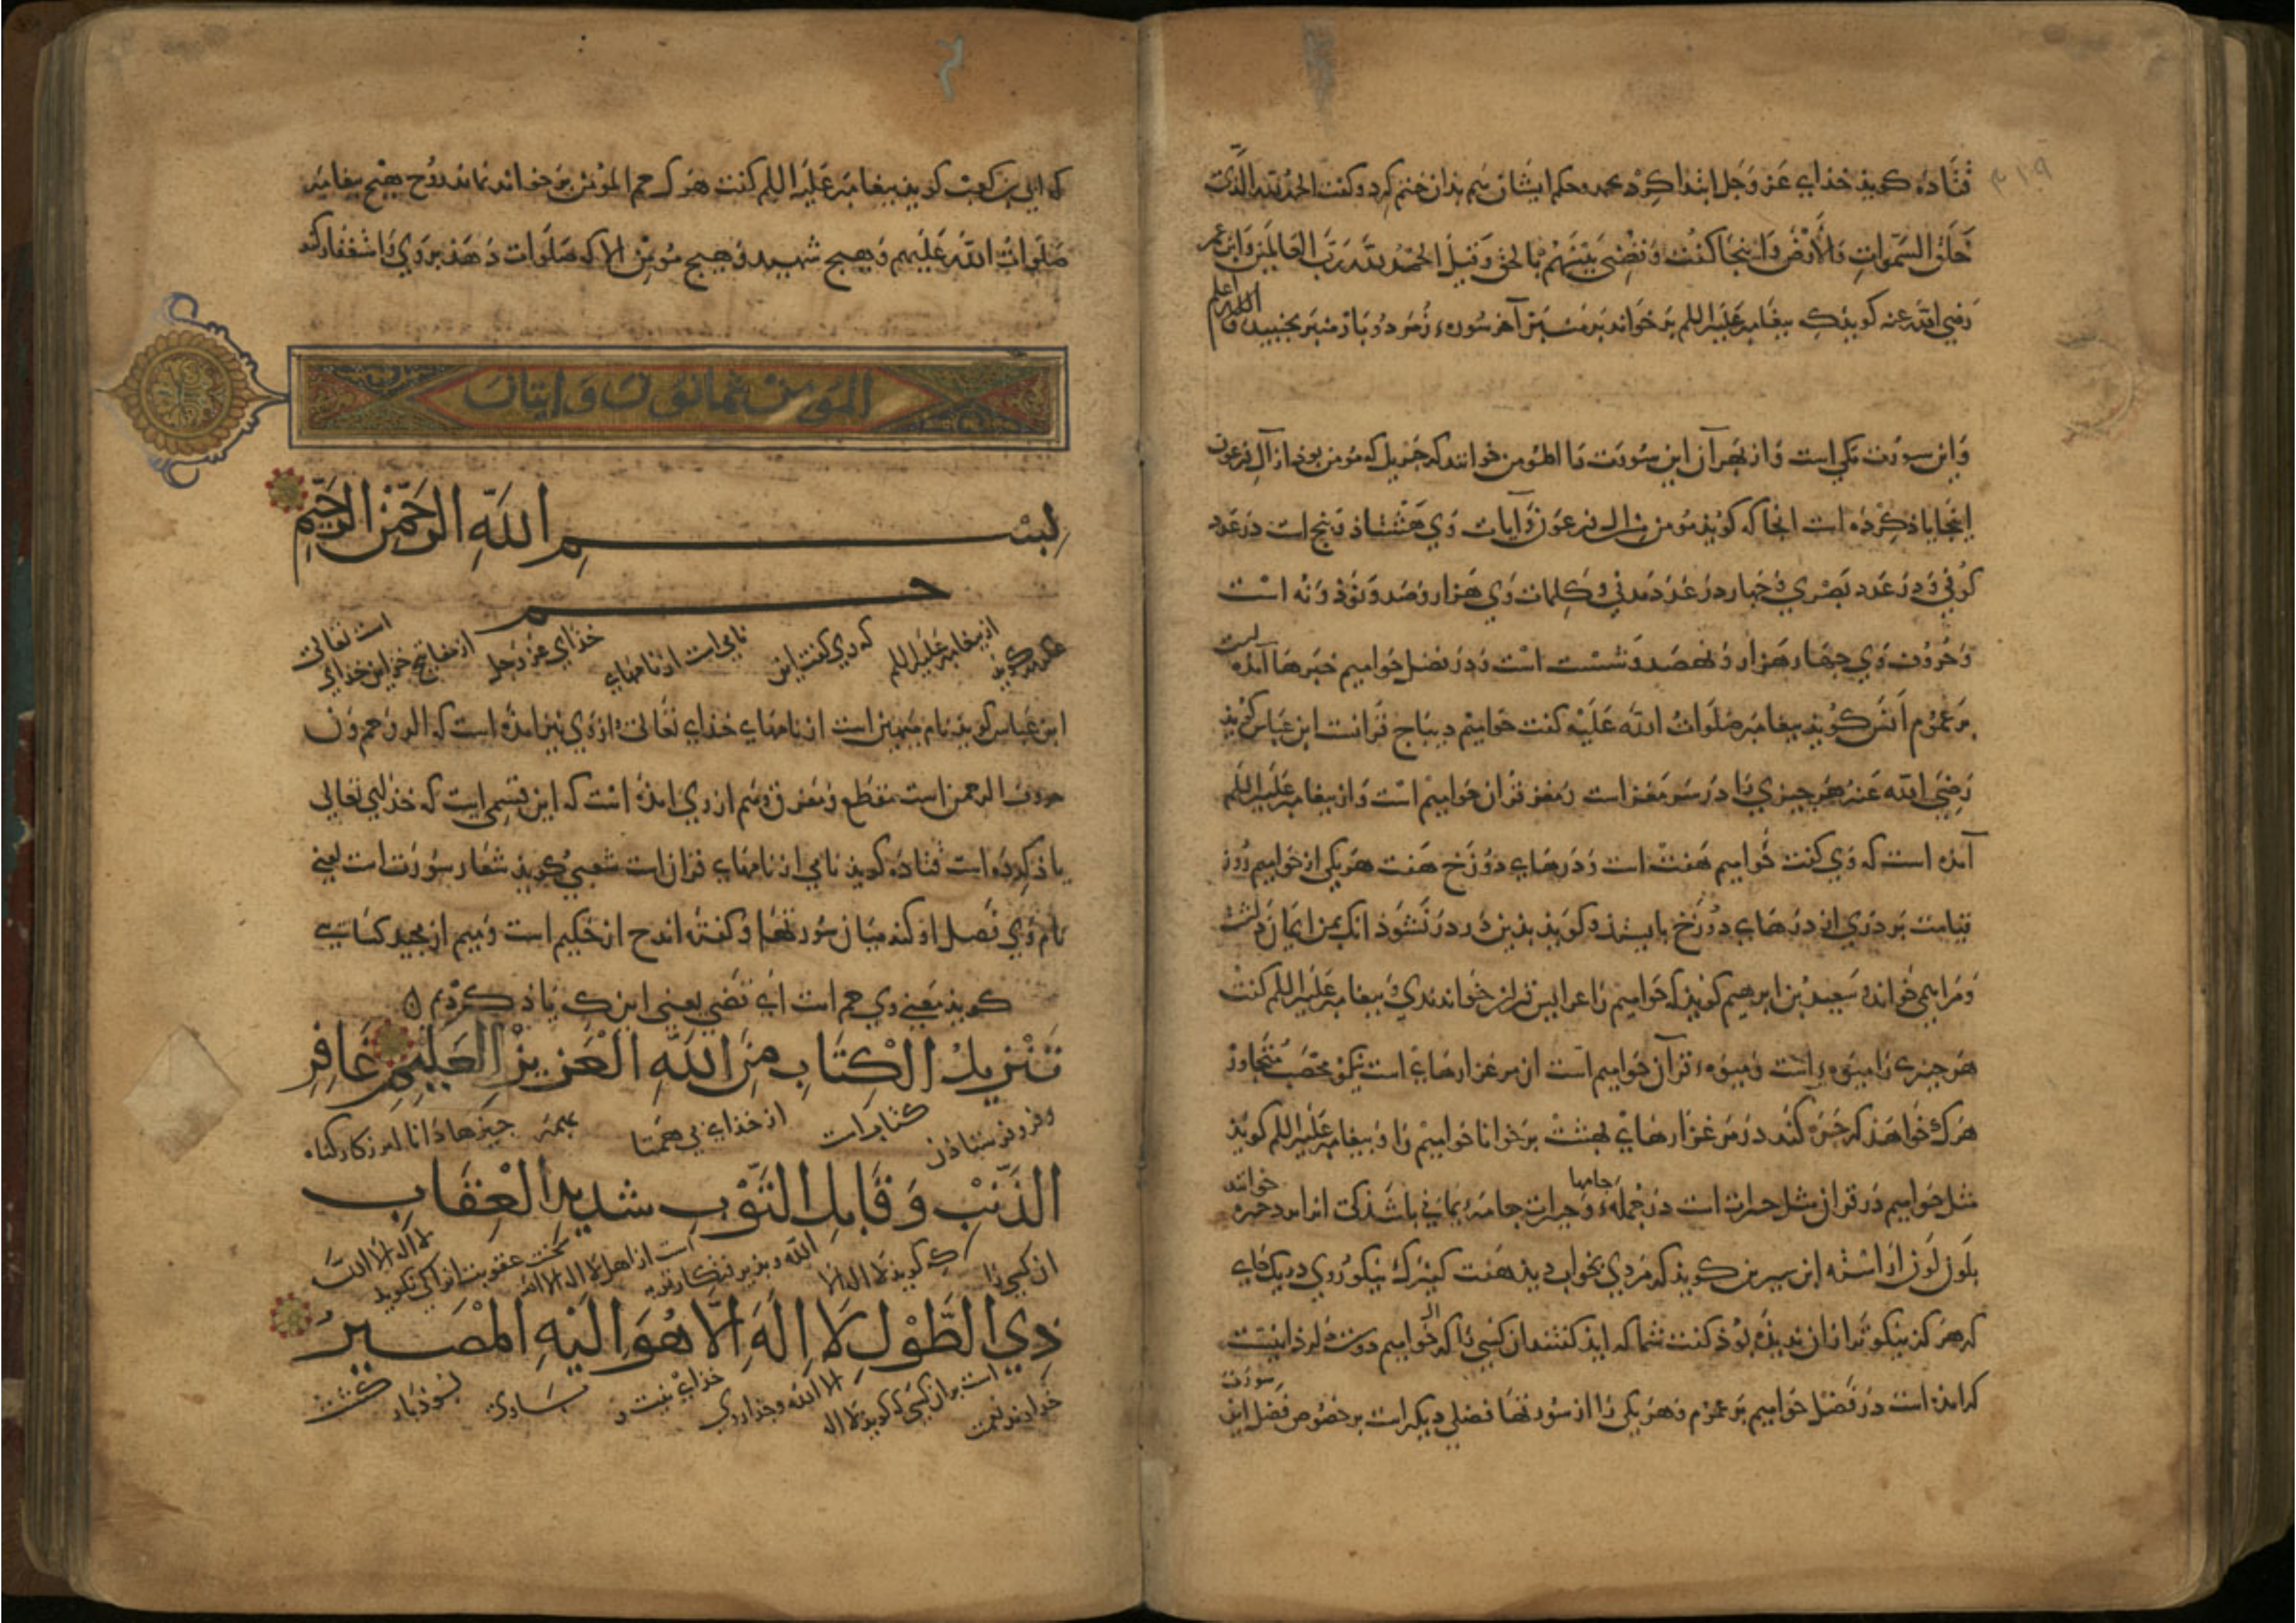 قتاده کویذ خذاي عز وجل ابتدا کرد بحمد وحکم ایشان هم بذان ختم کرد وکفت الحمد لله الذی
خلق السموات والارض واینجا کفت وقضی بینهم بالحق وقیل الحمد لله رب العالمین وابن عمر
رضی الله عنه کویذک بیغامبر علیه السلم بر خواند بر منبر آخر سوره زمر دو بار منبر بجنبید والله اعلم
واین سورت مکی است واز بهر آن این سورت را المؤمن خوانند که حزبیل که مومن بوذ از آل فرعون
اینجا یاذ کرده است انجا که کویذ مومن من ال فرعون وآیات وی هشتاذ وبنج است در عدد
کوفی و در عدد بصری و جهار در عدد مدنی وکلمات وی هزار وصد ونوذ ونه است
وحروف وی جهار هزار ونهصد وشست است ودر فضل حوامیم خبرها آمده است
بر عموم انس کویذ بیغامبر صلوات الله علیه کفت حوامیم دیباج قرانست ابن عباس کویذ
رضی الله عنه هر جیزی را مغز است ومغز قران حوامیم است واز بیغامبر علیه السلم
آمده است که وی کفت حوامیم هفت است ودرهاي دوزخ هفت هر یکی از حوامیم روز
قیامت بر دری از درهاي دوزخ بایستذ و کویذ بذین در در نشوذ انک بمن ایمان داشت
ومرا می خواند وسعید بن ابرهیم کویذ که حوامیم را عرایس قران خواندندی وبیغامبر علیه السلم کفت
هر جیزی را میوه است ومیوه قرآن حوامیم است ان مرغزارهاي است نیکو مخصب متجاور
هر ک خواهذ که جره کند در مرغزارهاي بهشت بر خوانا حوامیم را وبیغامبر علیه السلم کویذ
مثل حوامیم در قران مثل حبرات است در جمله جامها وحبرات جامه یمانی باشذ کی انرا خوانند
بلون لون اراسته ابن سیرین کویذ که مردی بخواب دیذ هفت کنیزک نیکو روی در یک جاي
که هرکز نیکوتر از ان ندیذه بوذ کفت شما که ایذ کفتند از ان کسی که ال حوامیم دوست
که امده است در فضل حوامیم بر عموم وهر یکی را از سورتها فضلی دیکر است بر خصوص فضل این سورت
که ابی بن کعب کویذ بیغامبر علیه السلم کفت هر ک حم المؤمن بر خواند نماند روح هیج بیغامبر
صلوات الله علیهم وهیج شهید وهیج مومن الا که صلوات دهذ بر وی واستغفار کند
المؤمن ثمانون وایتان
بسم الله الرحمن الرحیم
حم
عکرمه کویذ از بیغامبر علیه السلم که وی کفت این نامی است از نامهاي خذاي عز وجل از مفاتیح خزاین خذاي است تعالی
ابن عباس کویذ نام مهین است از نامهاي خذاي تعالی واز وی نیز امده است که الر وحم ون
حروف الرحمن است مقطع ومفرق وهم از وی امذه است که این قسمی است که خذاي تعالی
یاذ کرده است قتاده کویذ نامی از نامهاي قران است شعبی کویذ شعار سورت است یعنی
نام وی فصل او کند میان سورتها وکفته اند ح از حکیم است ومیم از مجید کسائی
کویذ معنی وی حم است اي قضی یعنی اینک یاذ کردیم ۝
تنزیل الکتاب من الله العزیز العلیم غافر
وفرو فرستاذن کتاب است از خذاي بی همتا بهمه جیزها دانا امرزکار کناه
الذنب وقابل التوب شدید العقاب
از کسی را کی کویذ لا اله الا الله وبذیرفتکار توبه است از اهل لا اله الا الله سخت عقوبت از انکی نکویذ لا اله الا الله
ذی الطول لا اله الا هو الیه المصیر
خذاوند نعمت است بر ان کسی که کویذ لا اله الا الله وجذ از وی خذاي نیست و بسوذ باز کشت